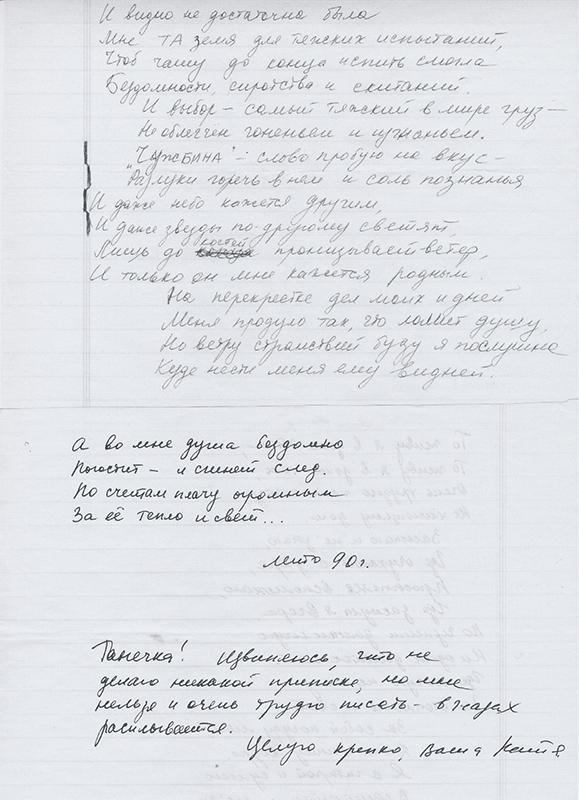 И видно не достаточна была
Мне ТА земля для тяжских испытаний,
Чтоб чашу до конца испить смогла
Бездомности, сиротства и скитаний.
И выбор – самый тяжский в мире груз –
Не облегчен гоненьем и изгнаньем.
"ЧужБИНА" – слово пробую на вкус –
Разлуки горечь в нем и соль познанья
И даже небо кажется другим,
И даже звезды по-другому светят,
Лишь до костей пронизывает ветер,
И только он мне кажется родным.
На перекрестке дел моих и дней
Меня продуло так, что ломит душу,
Но ветру странствий буду я послушна
Куда нести меня ему видней.
А во мне душа бездомно
Погостит – и сгинет след.
По счетам плачу огромным
За её тепло и свет...
лето 90 г.
Танечка! Извиняюсь, что не
делаю никакой приписки, но мне
нельзя и очень трудно писать – в глазах
расплывается.
Целую крепко, Ваша Катя.